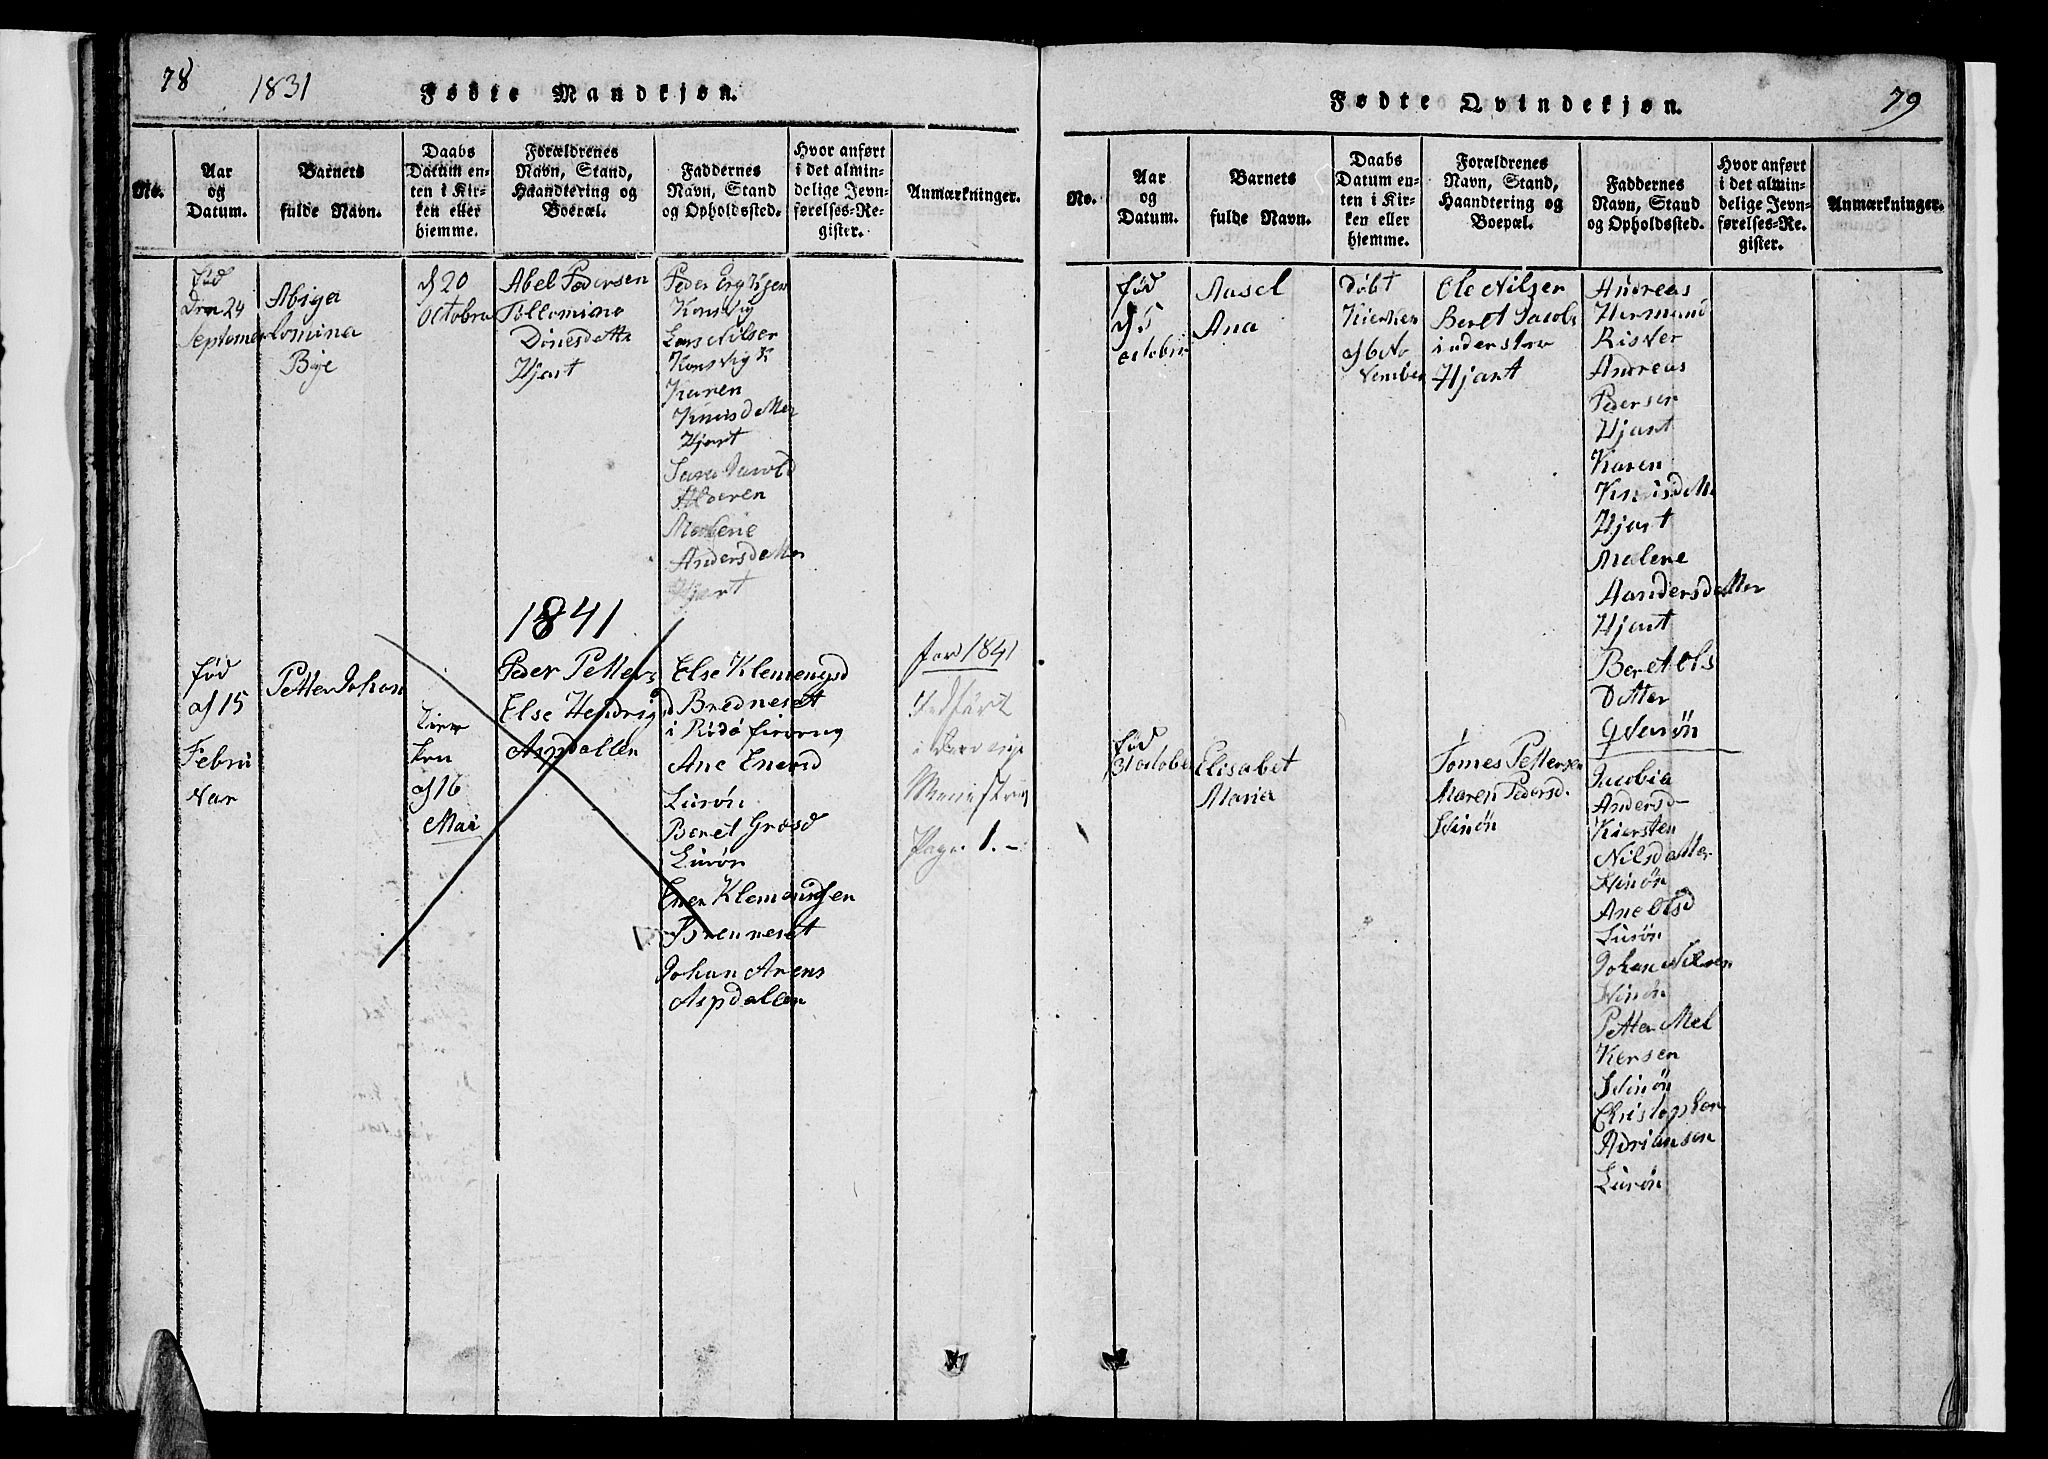 78
1831
Fødte Mandkjøn.
No.
Aar
og
Datum.
Barnets
fulde Navn.
Daabs
Datum en-
ten i Kir-
ken eller
hjemme.
Forældrenes
Navn, Stand,
Haandtering og
Boepæl.
Faddernes
Navn, Stand
og Opholdssted.
Hvor anført
i det almin-
delige Jevn-
førelses-Re-
gister.
Anmærkninger.
fød
Den 24
Septomer
Abiga
lomina
Bije
d 20
Octobro
Abel Pedersen
Tollomino
Dönesdotter
Hjart
Peder
Konsvig
Lars Nilser
Konsvig
Karen
Knusdotter
Hjart
Alderen
Malene
Andersdotter
Hjart
1841
fød
d 15
Febru
Var
Petter Johan
Kirr
ken
d 16
Mai
Peder Petters
Else Hendrigsd
Aspdallen
Else Klemengsd
Bredneset
i Rödö
Ane Enersd
Lurön
Beret Grosd
Lurön
Ener Klemendsen
Brenneset
Johan Arens
Aspdallen
for 1841
Indfört
i
Page. 1.-
Fødte Qvindekjøn.
79
No.
Aar
og
Datum.
Barnets
fulde Navn.
Daabs
Datum en-
ten i Kir-
ken eller
hjemme.
Forældrenes
Navn, Stand,
Haandtering og
Boepæl.
Faddernes
Navn, Stand
og Opholdssted.
Hvor anført
i det almin-
delige Jevn-
førelses-Re-
gister.
Anmærkninger.
fød
d 5
octobr
Aasel
Ana
Døbt
Kierken
d 6 No
Vember
Ole Nilser
Beret Jacobs
inderstro
Hjart
Andreas
Hermand
Risver
Andreas
Pedersen
Hjart
Karen
Knusdotter
Hjart
Malene
Aandersdotter
Hjart
Beret Ols
Dotter
Qvarön
fød
31 octobe
Elisabet
Maria
Tomes Pettersen
Maren Pedersd.
Svinön
Jacobia
Andersd-
Kiersten
Nilsdotter
Svinön
Ane Olsd
Lurön
Johan Nilsen
Svinön
Petter Mel
Kersen
Svinön
Christopher
Adriansen
Lurön